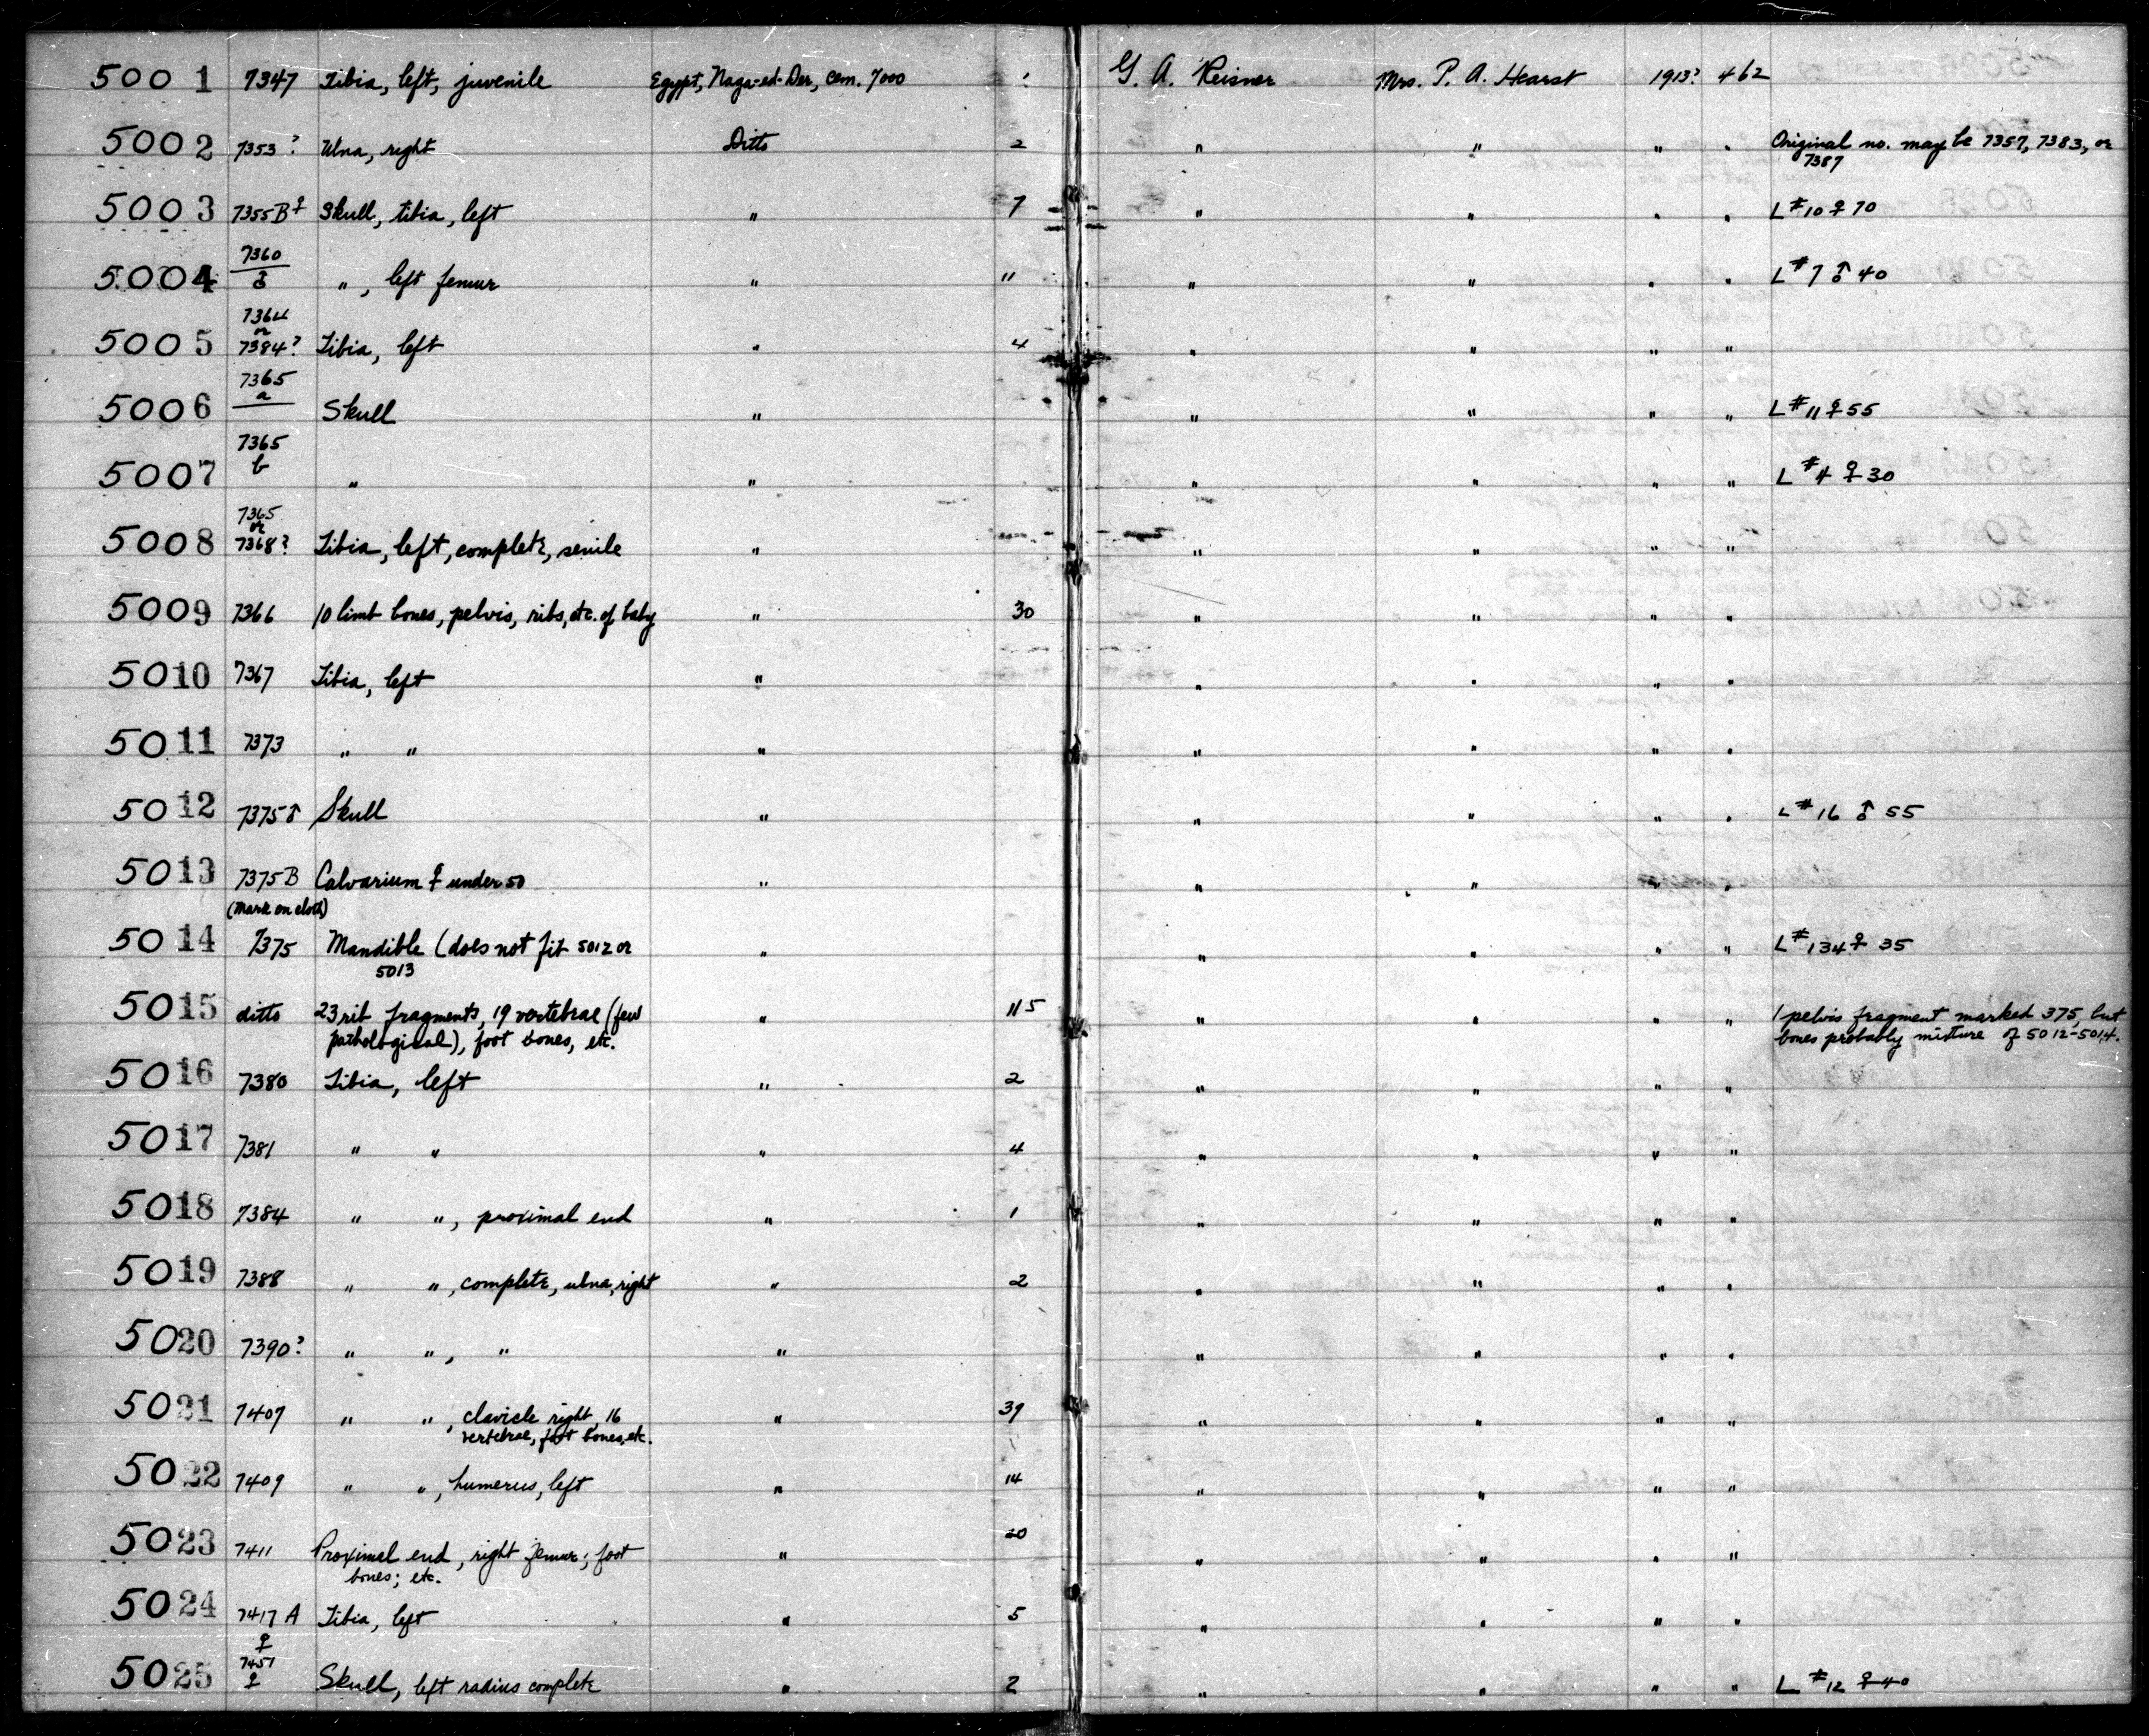 5001 7347 Tibia, left, juvenile Egypt, Naga-ed-Der, cem. 7000 1 G. A. Reisner Mrs. P. A. Hearst 1913? 462
5002 7353? Ulna, right Ditto 2 " " " " Original no. may be 7357, 7383, or
7387
5003 7355B♀ Skull, tibia, left " 7 " " " " L#10 ♀ 70
7360
5004 ♂ ", left femur " 11 " " " " L#7 ♂ 40
7364
or
5005 7384? Tibia, left " 4 " " " "
7365
a
5006 Skull " " " " " L#11 ♀ 55
7365
5007 b " " " " " " L#4 ♀ 30
7365
or
5008 7368? Tibia, left, complete, senile " " " " "
5009 7366 10 limb bones, pelvis, ribs, etc. of baby " 30 " " " "
5010 7367 Tibia, left " " " " "
5011 7373 " " " " " " "
5012 7375♂ Skull " " " " " L#16 ♂ 55
5013 7375B Calvarium ♀ under 50 " " " " "
(Mark on cloth)
5014 7375 Mandible (does not fit 5012 or " " " " " L#134 ♀ 35
5013
5015 ditto 23 rib fragments, 19 vertebrae (few " 115 " " " " 1 pelvis fragment marked 375, but
pathological), foot bones, etc. bones probably mixture of 5012-5014.
5016 7380 Tibia, left " 2 " " " "
5017 7381 " " " 4 " " " "
5018 7384 " ", proximal end " 1 " " " "
5019 7388 " ", complete, ulna, right " 2 " " " "
5020 7390? " ", " " " " " "
5021 7407 " ", clavicle right, 16 " 39 " " " "
vertebrae, foot bones, etc.
5022 7409 " ", humerus, left " 14 " " " "
5023 7411 Proximal end, right femur; foot " 20 " " " "
bones; etc.
5024 7417 A Tibia, left " 5 " " " "
♀
7451
5025 ♀ Skull, left radius complete " 2 " " " " L #12 ♀ 40